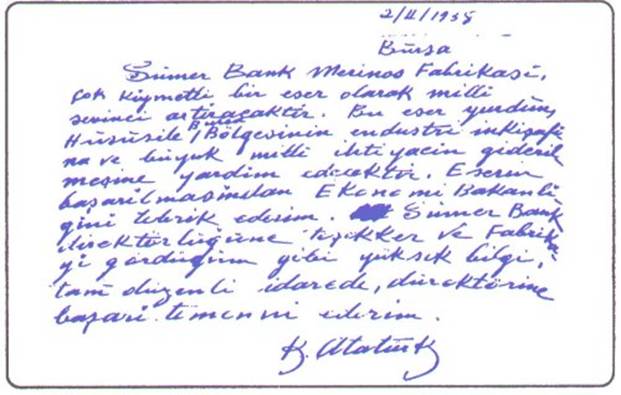 2/II/1938
Bursa
Sümer Bank Merinos Fabrikası,
çok kıymetli bir eser olarak milli
sevinci artıracaktır. Bu eser yurdun,
Hususile Bursa Bölgesinin endustri inkişafı
na ve büyük milli ihtiyacın gideril
mesine yardım edecektir. Eserin
başarılmasından Ekonomi Bakanlı
ğini tebrik ederim. Sümer Bank
direktörlüğüne teşekkür ve Fabrika
yi gördüğüm gibi yüksek bilgi,
tam düzenli idarede, direktörüne
başarı temenni ederim.
K. Atatürk